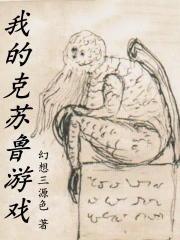 我的克苏鲁游戏
幻想三源色 著